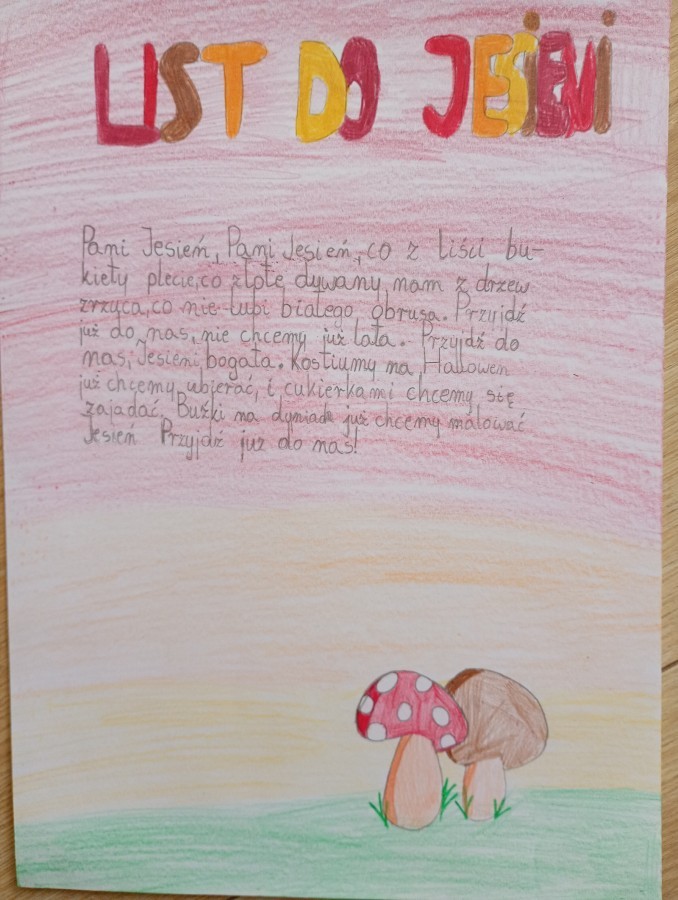 LIST DO JESIENI
Pani Jesień, Pani Jesień, co z liści bu-
kiety plecie, co złote dywany nam z drzew
zrzyca, co nie lubi białego obrusa. Przyjdź
już do nas, nie chcemy już lata. Przyjdź do
nas, Jesieni bogata. Kostiumy na Hallowen
już chcemy ubierać, i cukierkami chcemy się
zajadać. Buźki na dyniach już chcemy malować
Jesień Przyjdź już do nas!